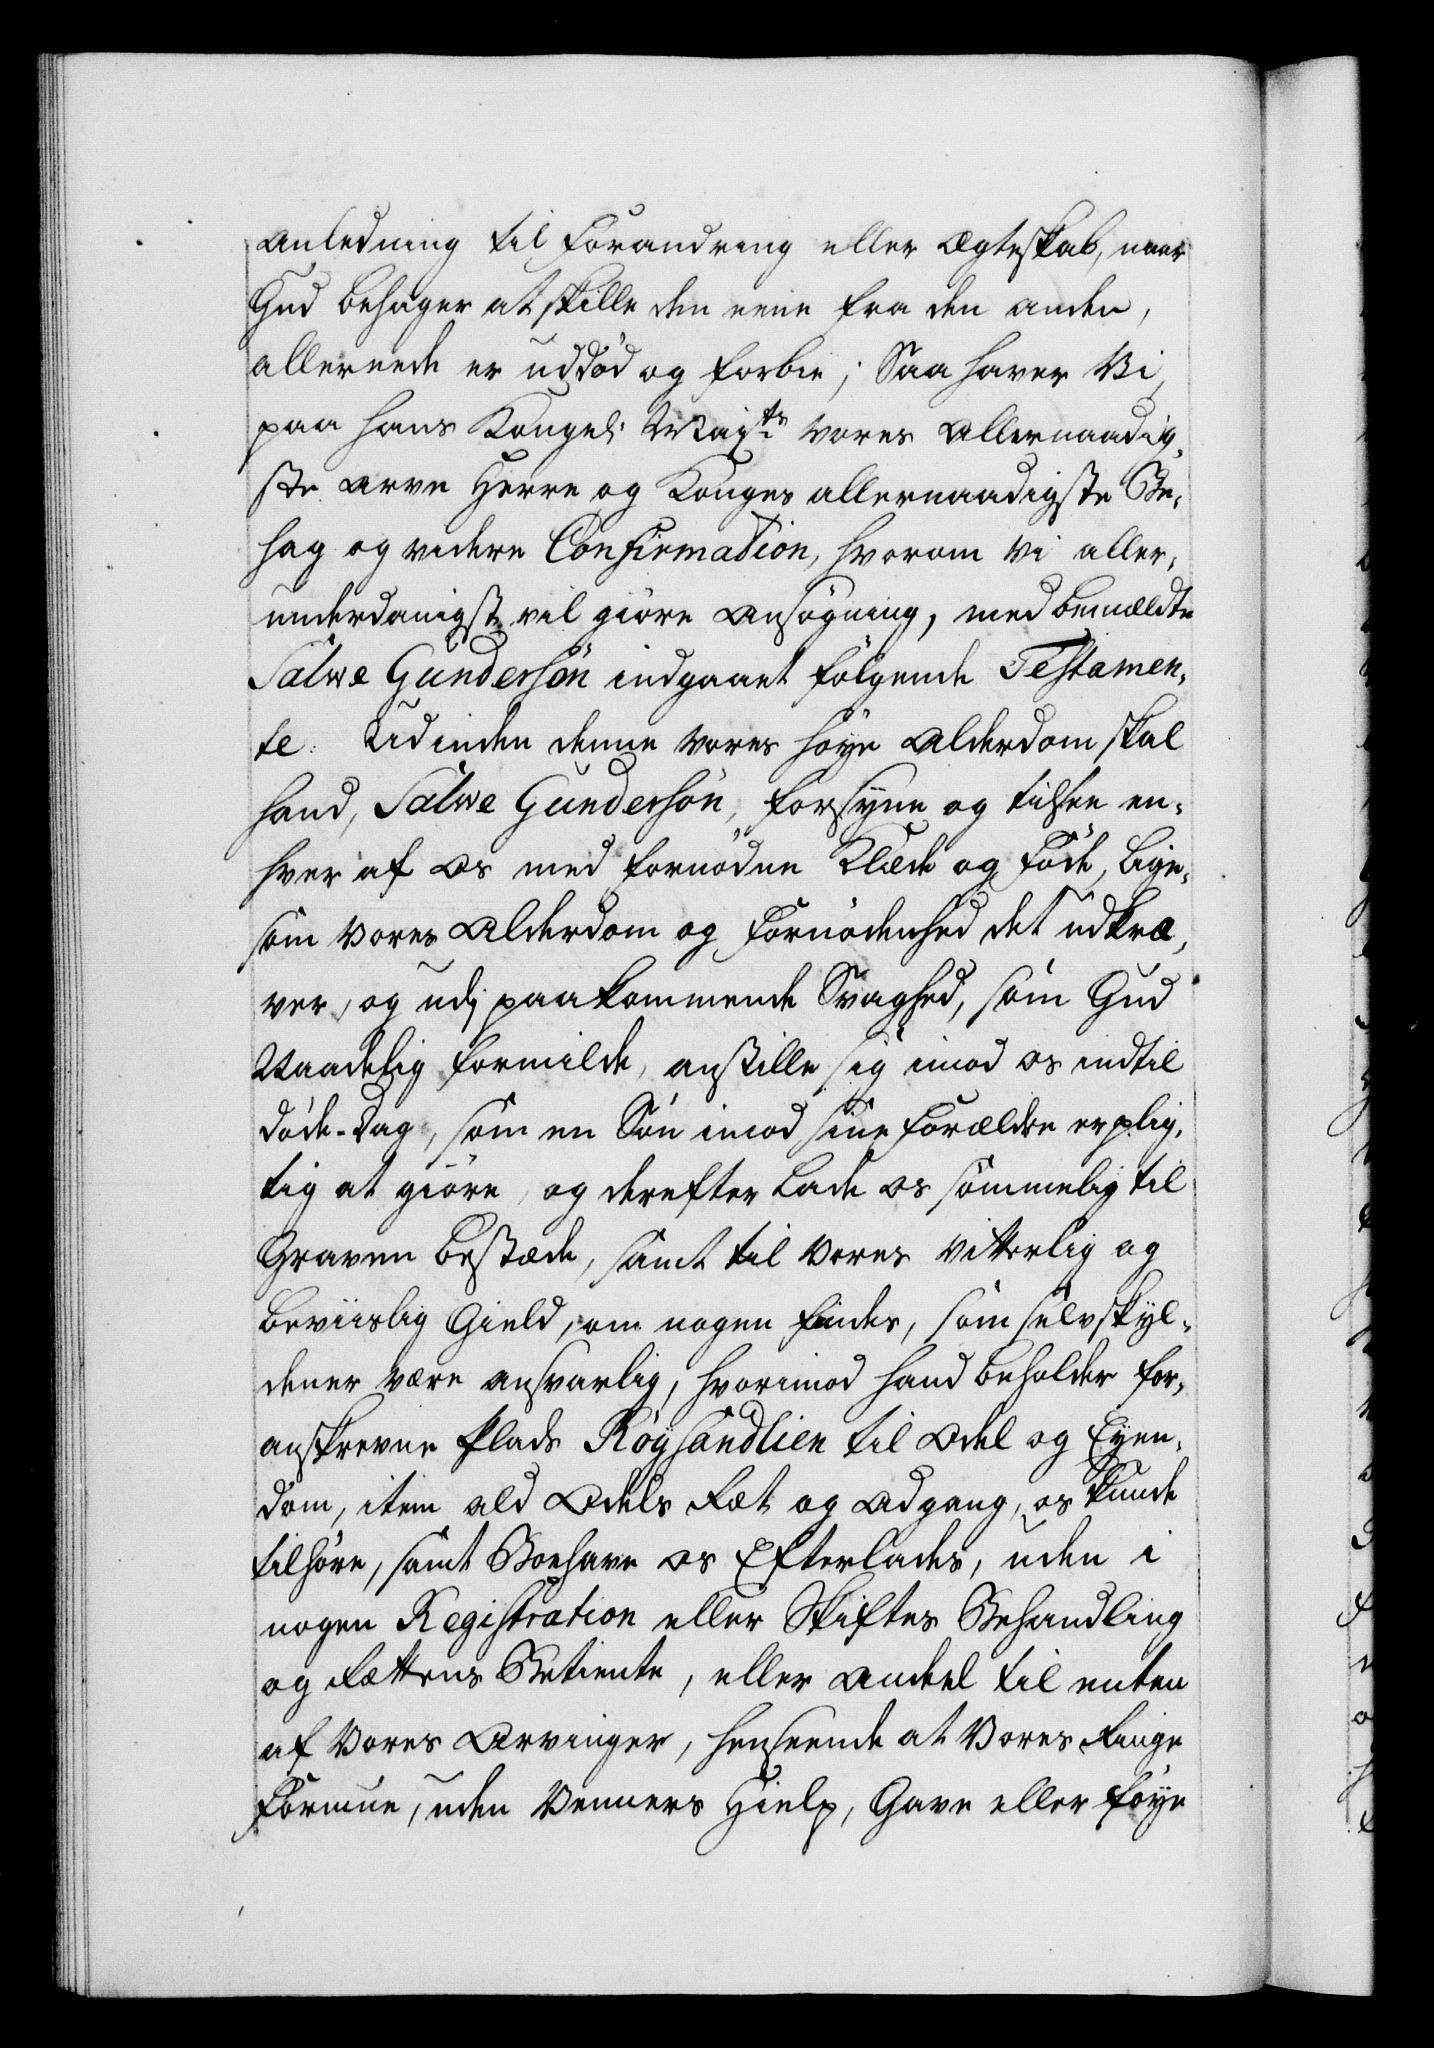 Anledning til Forandring eller Ægteskab, naar
Gud behager at skille den eene fra den anden,
allereede er uddød og forbie; Saa haver Vi
paa Hans Kongel: Mayts Vores Allernaadig-
ste Arve Herre og Konges allernaadigste Be-
hag og videre Confirmation, hvorom vi aller-
underdanigst vil giøre Ansøgning, med bemældte
Salwe Gundersøn indgaaet følgende Testamen-
te: Udi inden denne Vores høye Alderdom skal
hand, Salwe Gundersøn, forsyne og tilsee en-
hver af Os med fornødne Klæde og Føde, lige-
som Vores Alderdom og Fornødenhed det udkræ-
ver, og udj paakommende Svaghed, som Gud
Naadelig formilde, anstille sig imod os indtil
døde-Dag, som en Søn imod sine Forældre er plig-
tig at giøre, og derefter lade os sømmelig til
Graven bestæde, samt til Vores vitterlig og
beviislig Gield, om nogen findes, som selvskyl-
dener være ansvarlig, hvorimod hand beholder for-
anskrevne Plads Røysandlien til Odel og Eyen-
dom, item ald Odels Ræt og Adgang, os kunde
tilhøre, samt Boehave os Efterlades, uden i
nogen Registration eller Skiftes Behandling
og Rættens Betiente, eller Andeel til enten
af Vores Arvinger, henseende at Vores Ringe
Formue, uden Venners Hielp, Gave eller føye